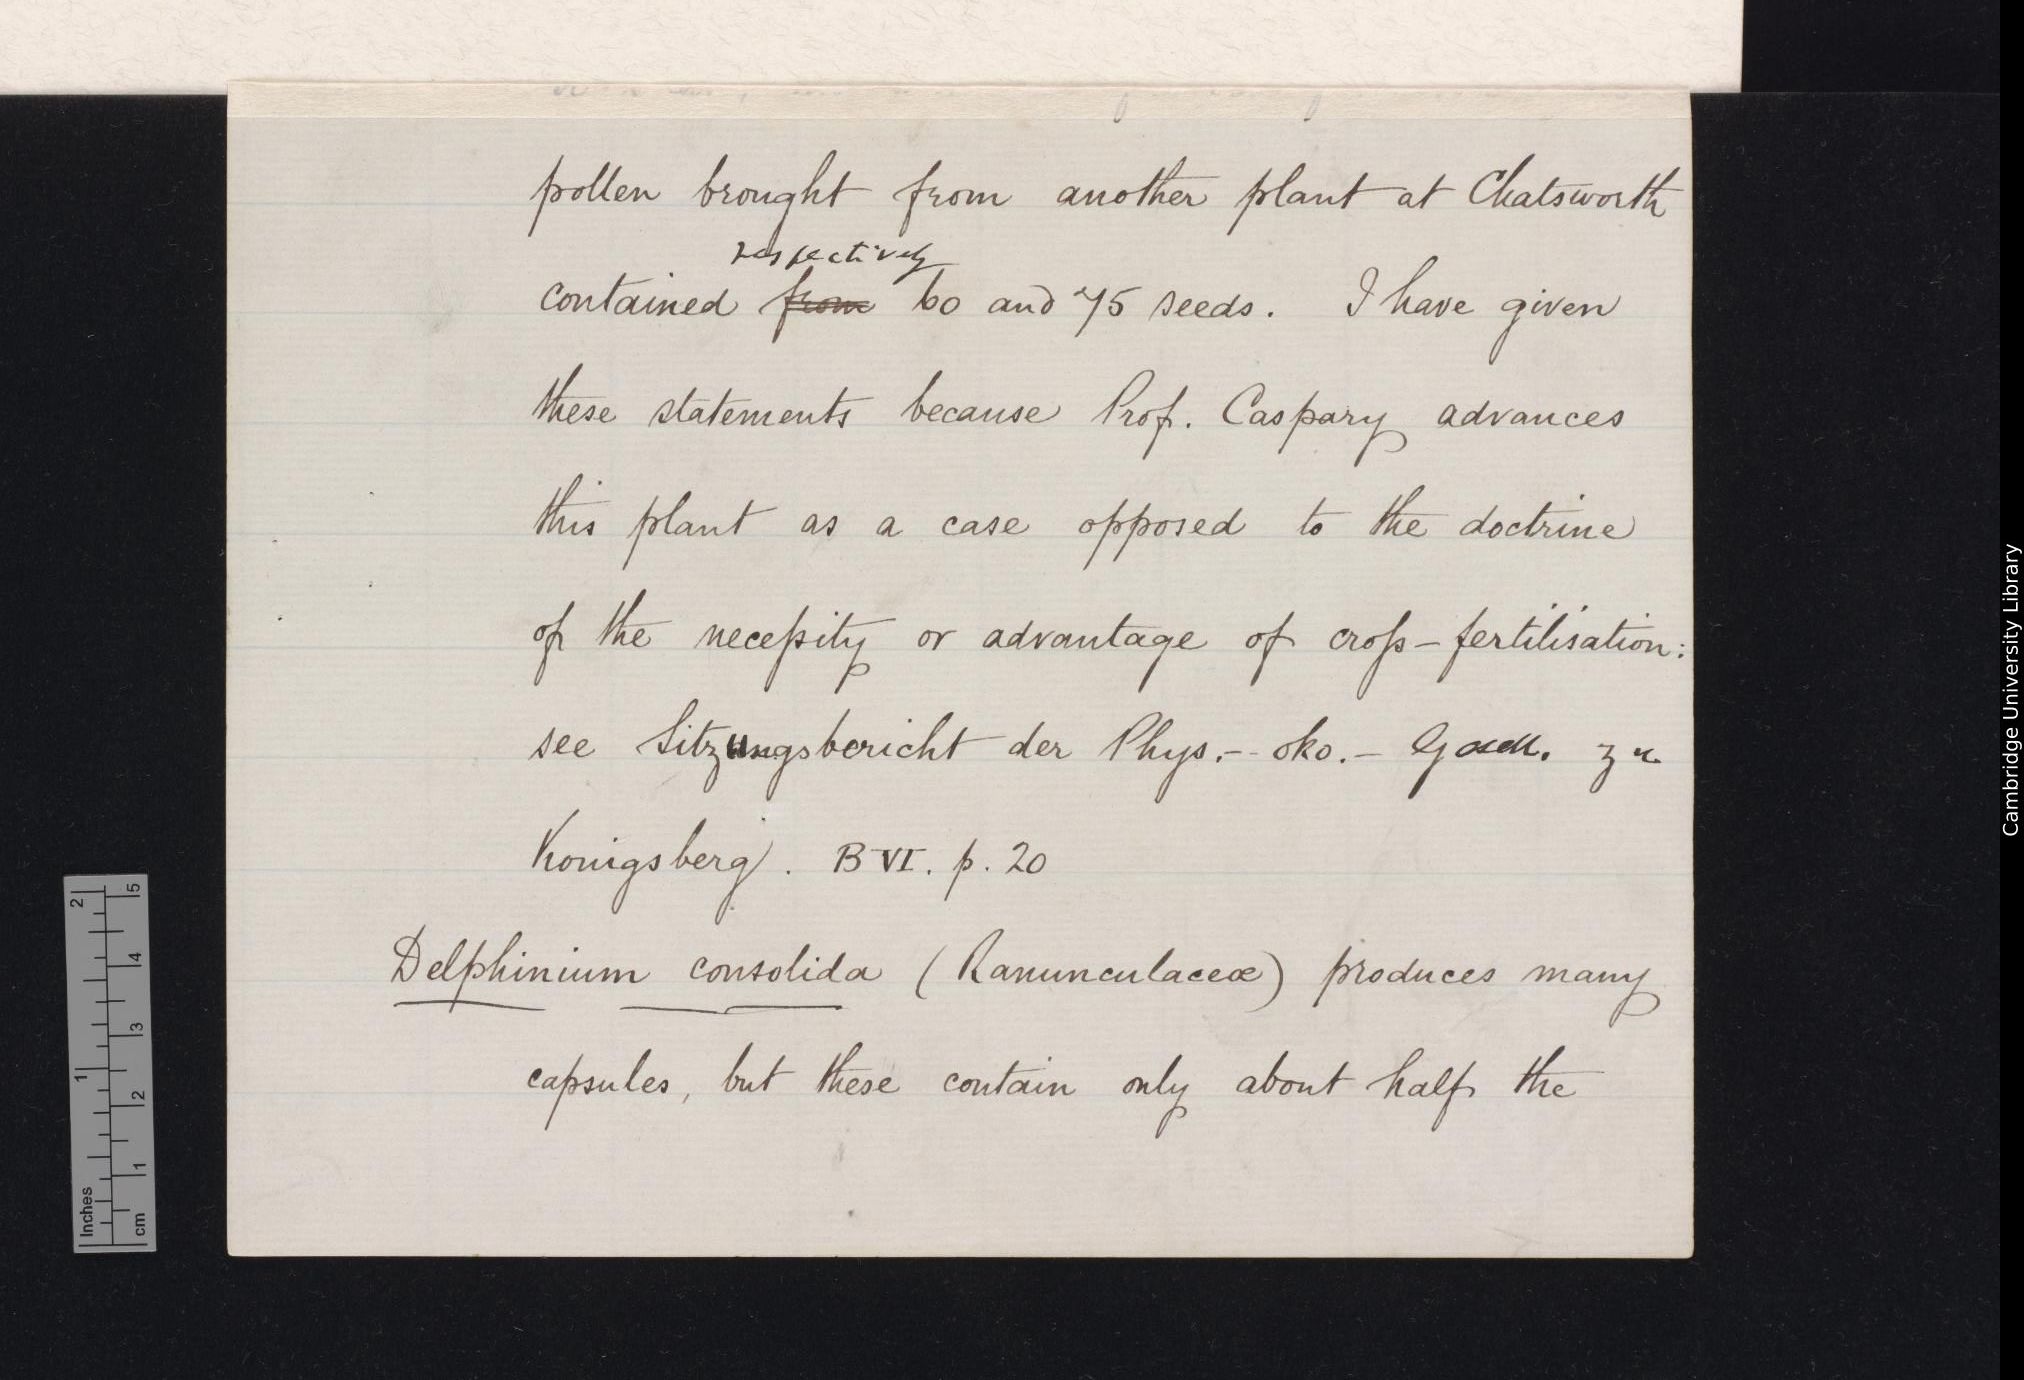 pollen brought from another plant at Chatsworth
respectively
contained from 60 and 75 seeds. I have given
these statements because Prof. Caspary advances
this plant as a case opposed to the doctrine
of the necessity or advantage of cross-fertilisation:
see Sitzungsbericht der Phys.- oko.- Gesell. zu
Konigsberg. B VI. p. 20
Delphinium consolida (Ranunculaceæ) produces many
capsules, but these contain only about half the
Inches
1
2
cm
1
2
3
4
5
Cambridge University Library